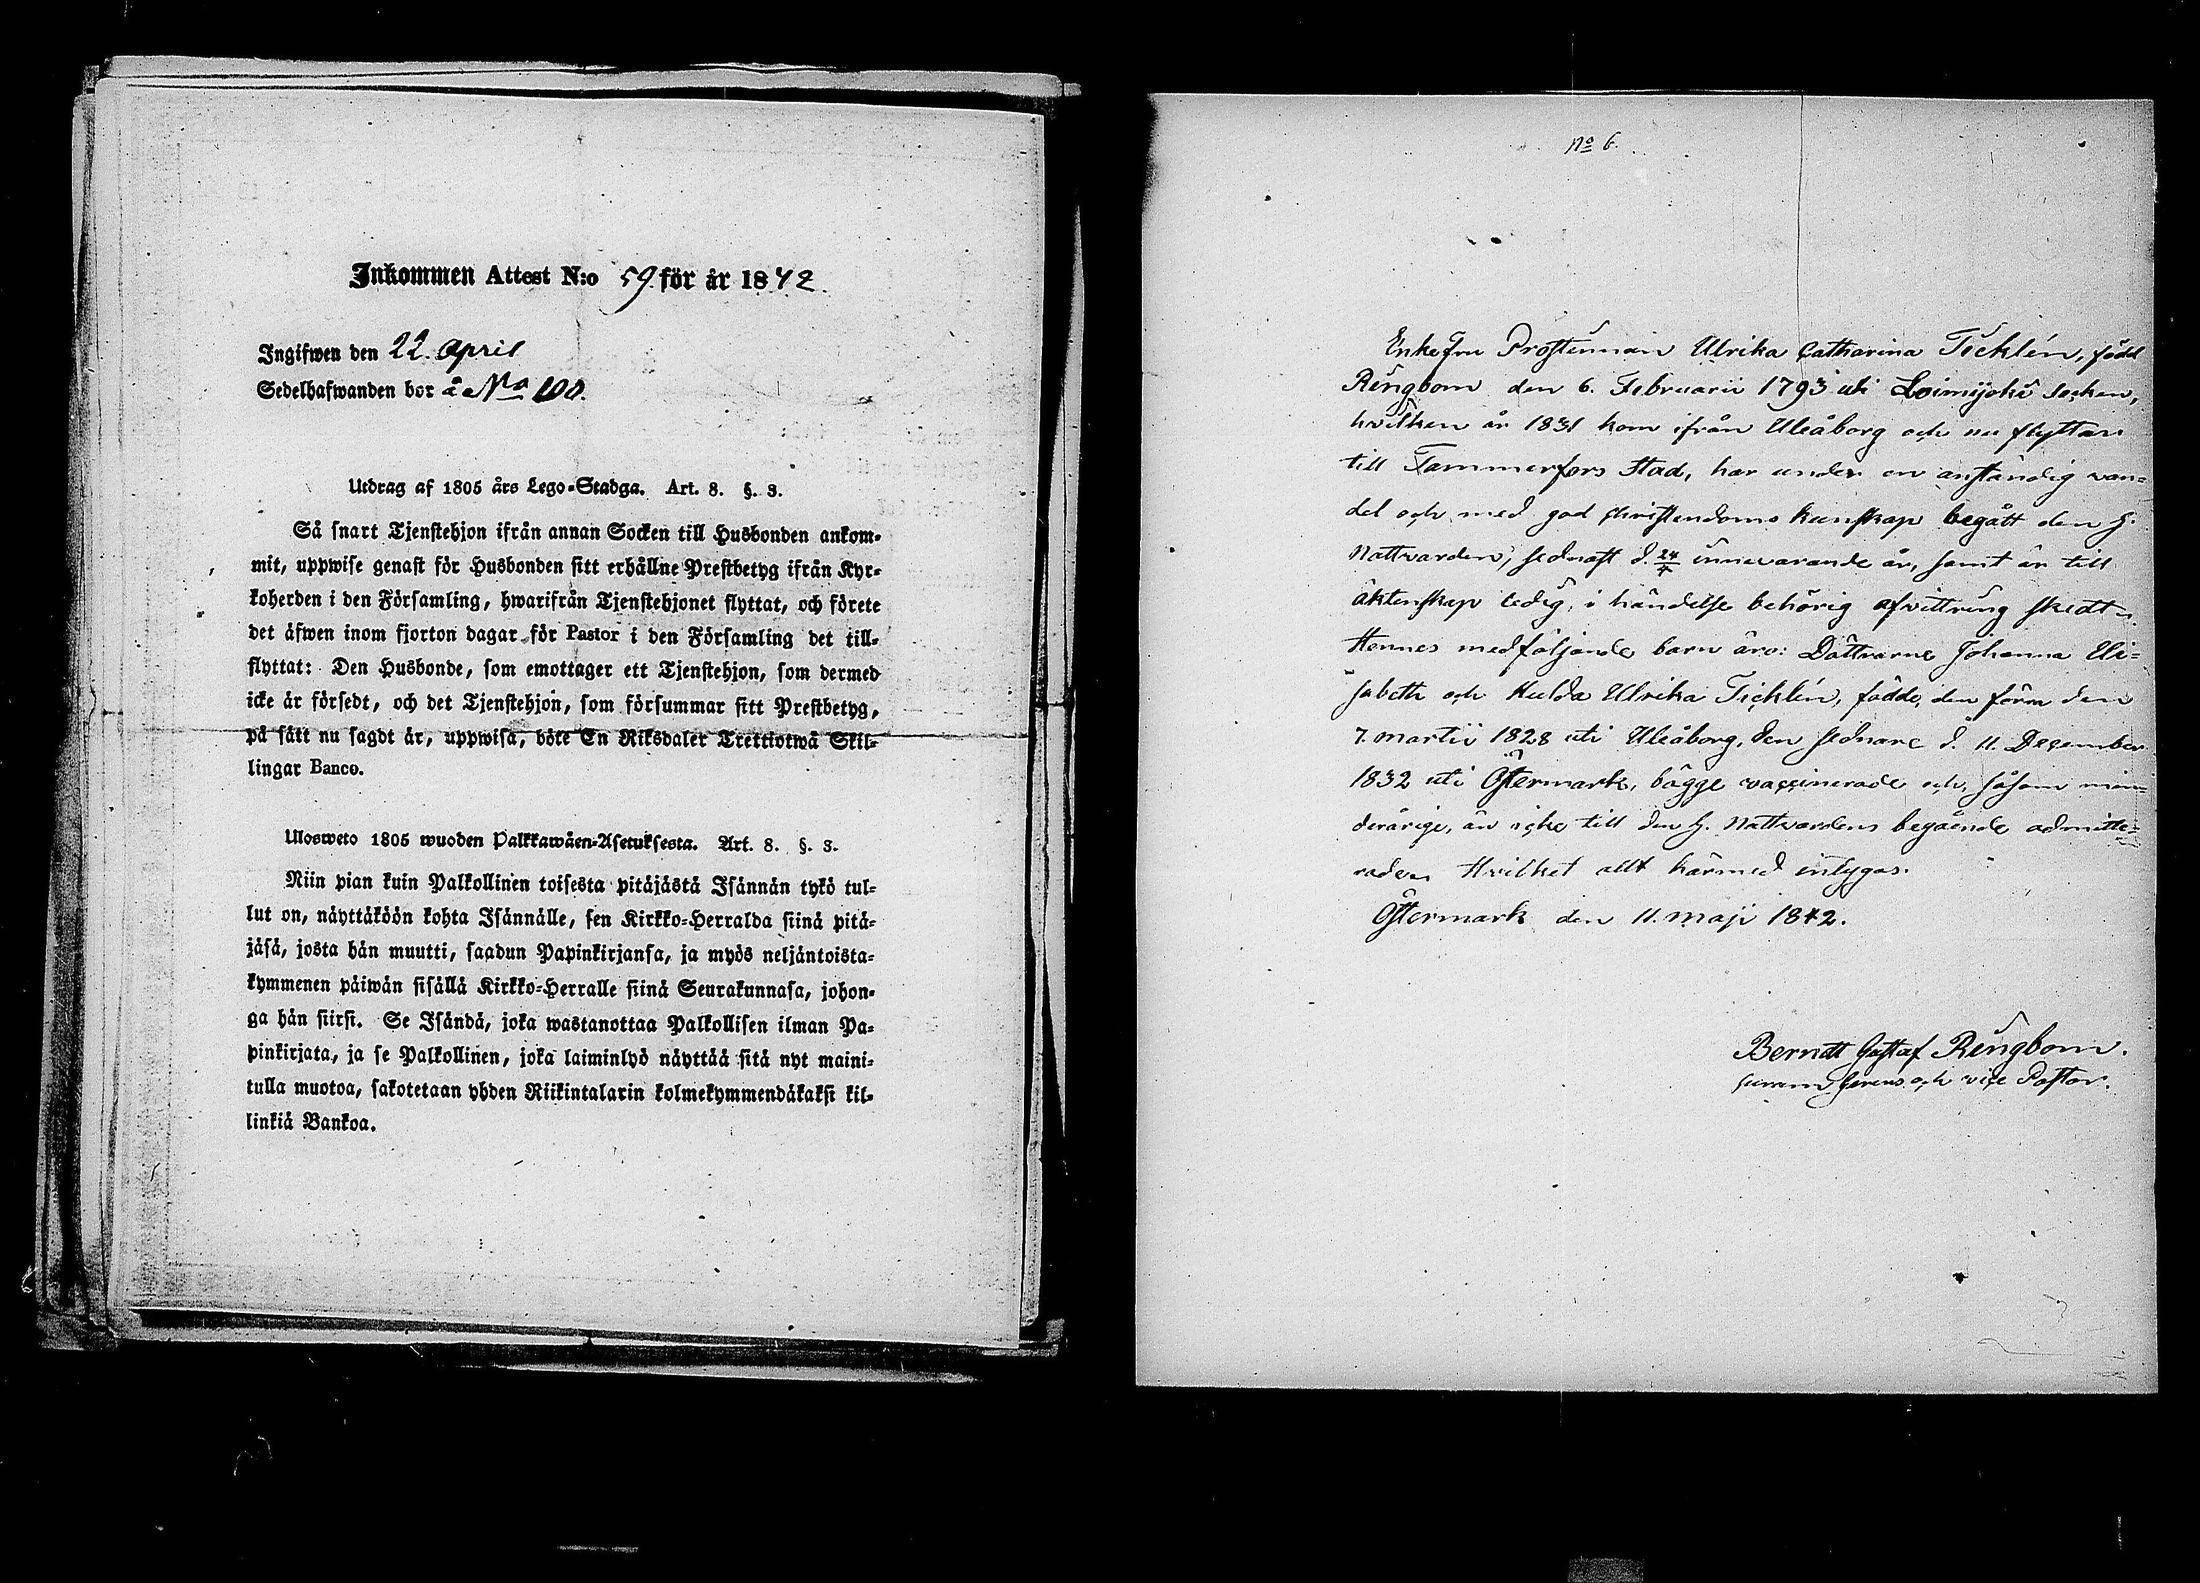 Inkommen Attest N:o 59 för år 1842.
Ingifwen den 22. April
Sedelhafwanden bor å No 100.
Utdrag af 1805 års Lego-Stadga. Art. 8. §. 3.
Så snart Tjenstehjon ifrån annan Socken till Husbonden ankom-
mit, uppwise genast för Husbonden sitt erhållne Prestbetyg ifrån Kyr-
koherden i den Församling, hwarifrån Tjenstehjonet flyttat, och förete
det äfwen inom fjorton dagar för Pastor i den Församling det till-
flyttat: Den Husbonde, som emottager ett Tjenstehjon, som dermed
icke är försedt, och det Tjenstehjon, som försummar sitt Prestbetyg,
på sätt nu sagdt är, uppwisa, böte En Riksdaler Trettiotwå Skil-
lingar Banco.
Ulosweto 1805 wuoden Palkkawäen-Asetuksesta. Art. 8. §. 3.
Niin pian kuin Palkollinen toisesta pitäjästä Isännän tykö tul-
lut on, näyttäköön kohta Isännälle, sen Kirkko-Herralda siinä pitä-
jäsä, josta hän muutti, saadun Papinkirjansa, ja myös neljäntoista-
kymmenen päiwän sisällä Kirkko-Herralle siinä Seurakunnasa, johon-
ga hän siirsi. Se Isändä, joka wastanottaa Palkollisen ilman Pa-
pinkirjata, ja se Palkollinen, joka laiminlyö näyttää sitä nyt maini-
tulla muotoa, sakotetaan yhden Riikintalarin kolmekymmendäkaksi kil-
linkiä Bankoa.
No 6.
Enkefru Prostinnan Ulrika Catharina Ticklén, född
Ringbom den 6. Februarii 1793 uti Loimijoki socken,
hvilken år 1831 kom ifrån Uleåborg och nu flyttar
till Tammerfors Stad, har under en anständig van-
del och med god christendoms kunskap begått den H.
Nattvarden, sednast d. 24/4 innevarande år, samt är till
äktenskap ledig, i händelse behörig afvittring skedt.
Hennes medföljande barn äro: Döttrarne Johanna Eli-
sabeth och Hulda Ulrika Ticklén, födde, den förra den
7. martii 1828 uti Uleåborg, den sednare d. 11. December
1832 uti Östermark, bägge vaccinerade och, såsom min-
derårige, än icke till den H. Nattvardens begående admitte-
rade. Hvilket allt härmed intygas.
Östermark den 11. maji 1842.
Berndt Gustaf Ringbom.
och vice Pastor.